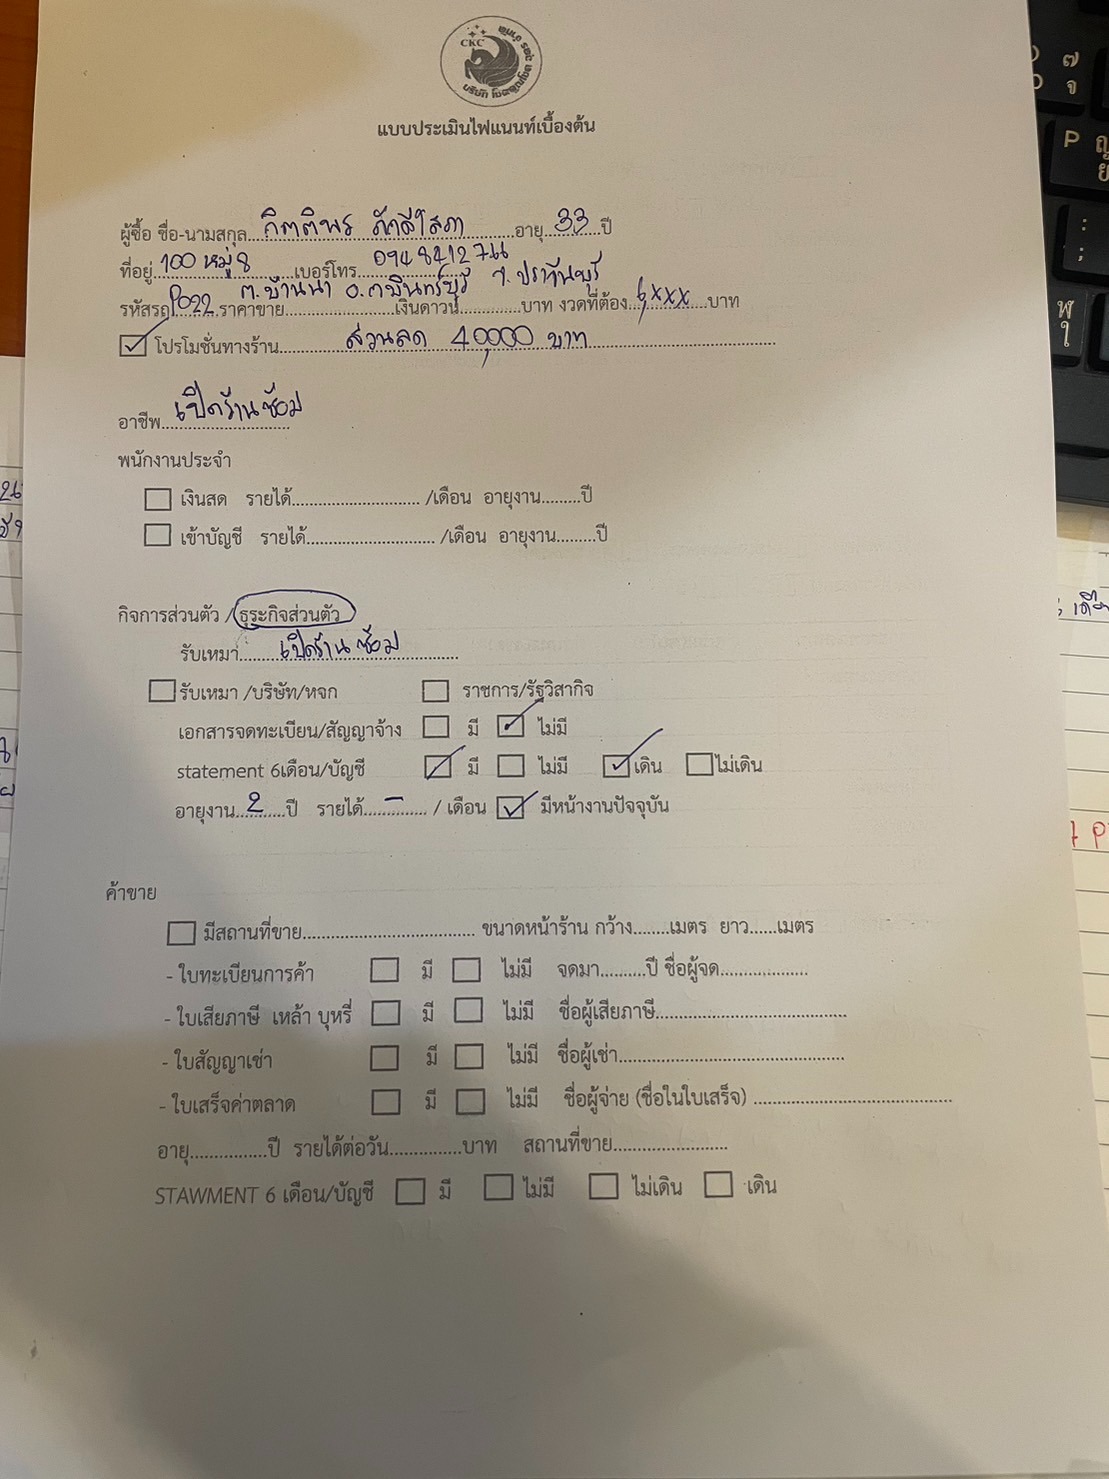 CKC
แบบประเมินไฟแนนท์เบื้องต้น
ผู้ซื้อ ชื่อ-นามสกุล กิตติพร ภักดีโสภา อายุ 33 ปี
ที่อยู่ 100 หมู่ 8 เบอร์โทร
ต.บ้านนา อ.กบินทร์บุรี จ.ปราจีนบุรี
รหัสรถ P022 ราคาขาย เงินดาวน์ บาท งวดที่ต้อง 6,xxx บาท
โปรโมชั่นทางร้าน ส่วนลด 40,000 บาท
อาชีพ เปิดร้านซ่อม
พนักงานประจำ
เงินสด รายได้ /เดือน อายุงาน ปี
เข้าบัญชี รายได้ /เดือน อายุงาน ปี
กิจการส่วนตัว / ธุระกิจส่วนตัว
รับเหมา เปิดร้านซ่อม
รับเหมา /บริษัท/หจก ราชการ/รัฐวิสากิจ
เอกสารจดทะเบียน/สัญญาจ้าง มี ไม่มี
statement 6เดือน/บัญชี มี ไม่มี เดิน ไม่เดิน
อายุงาน 2 ปี รายได้ - / เดือน มีหน้างานปัจจุบัน
ค้าขาย
มีสถานที่ขาย ขนาดหน้าร้าน กว้าง เมตร ยาว เมตร
- ใบทะเบียนการค้า มี ไม่มี จดมา ปี ชื่อผู้จด
- ใบเสียภาษี เหล้า บุหรี่ มี ไม่มี ชื่อผู้เสียภาษี
- ใบสัญญาเช่า มี ไม่มี ชื่อผู้เช่า
- ใบเสร็จค่าตลาด มี ไม่มี ชื่อผู้จ่าย (ชื่อในใบเสร็จ)
อายุ ปี รายได้ต่อวัน บาท สถานที่ขาย
STAWMENT 6 เดือน/บัญชี มี ไม่มี ไม่เดิน เดิน